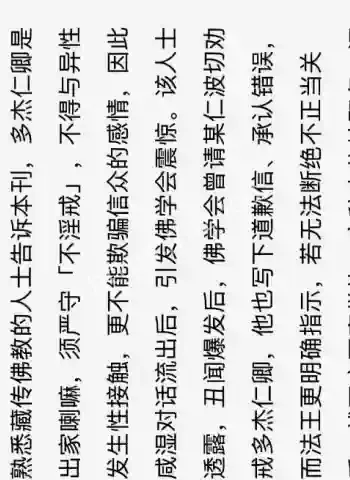 熟悉藏传佛教的人士告诉本刊，多杰仁卿是
出家喇嘛，须严守「不淫戒」，不得与异性
发生性接触，更不能欺骗信众的感情，因此
咸湿对话流出后，引发佛学会震惊。该人士
透露，丑闻爆发后，佛学会曾请某仁波切劝
戒多杰仁卿，他也写下道歉信、承认错误，
而法王更明确指示，若无法断绝不正当关